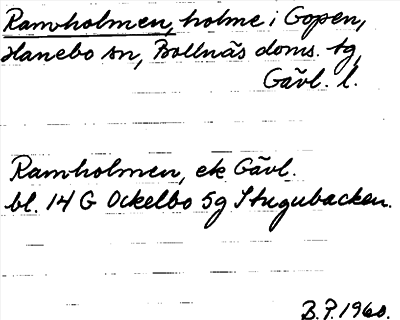 Ramholmen, holme i Gopen,
Hanebo sn, Bollnäs doms. tg,
Gävl. l.
Ramholmen, ek Gävl.
bl. 14 G Ockelbo 5g Stugubacken.
B.P. 1960.